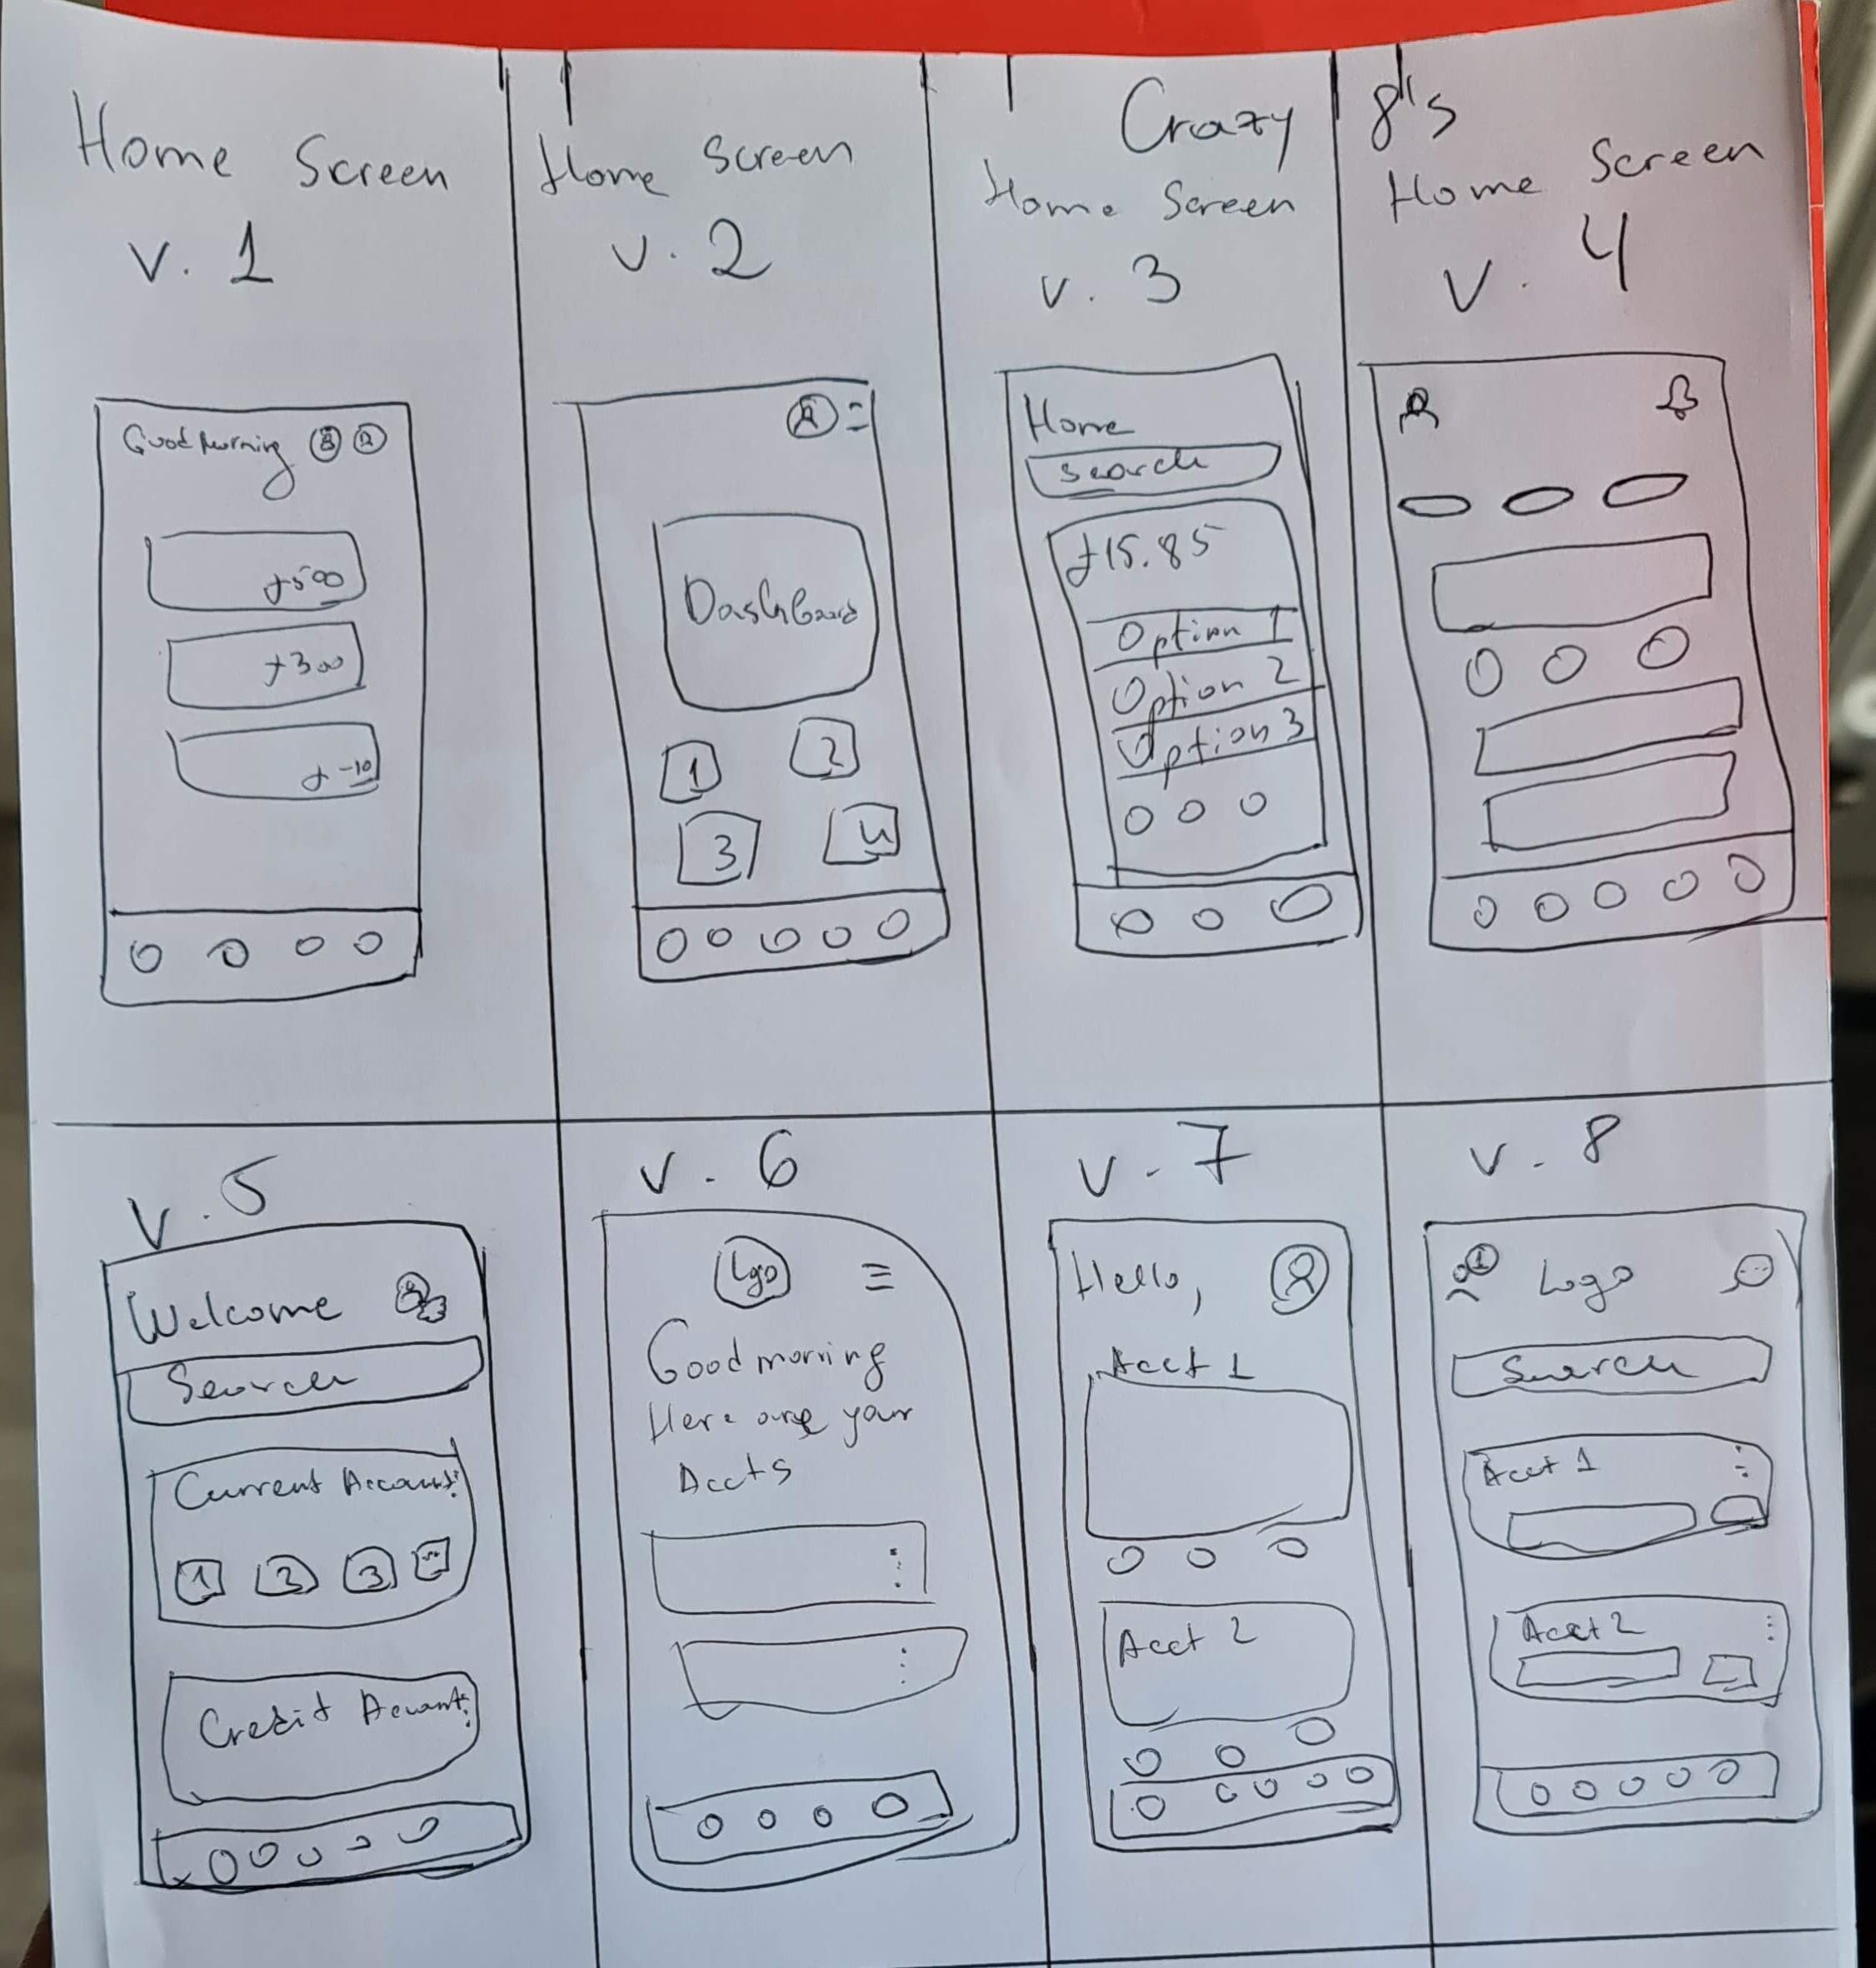 Crazy 8's
Home Screen
v. 1
Good Morning
£500
£300
£-10
Home Screen
v. 2
DashBoard
1
2
3
4
Home Screen
v. 3
Home
Search
£15.85
Option 1
Option 2
Option 3
Home Screen
v. 4
v. 5
Welcome
Search
Current Account
1 2 3
Credit Account
v. 6
Logo
Good morning
Here are your
Accts
v. 7
Hello,
Acct 1
Acct 2
v. 8
1
Logo
Search
Acct 1
Acct 2